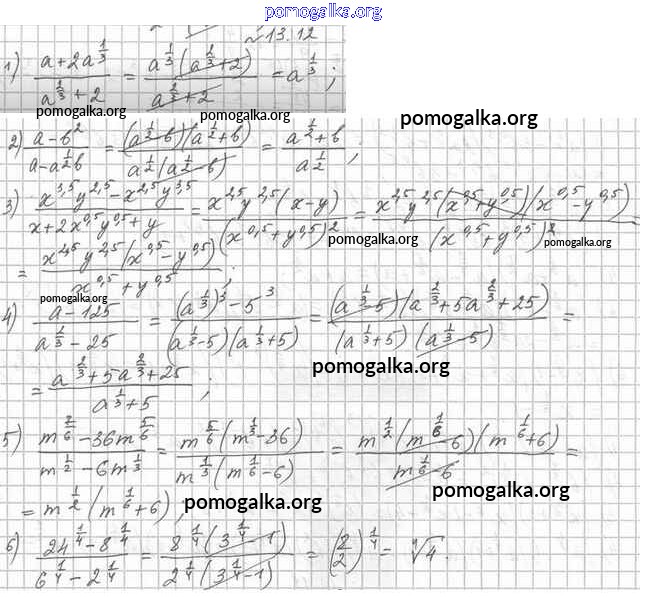 pomogalka.org
№13.12
1) (a + 2a^(1/3)) / (a^(1/3) + 2) = a^(1/3)(a^(2/3) + 2) / (a^(2/3) + 2) = a^(1/3);
pomogalka.org pomogalka.org
pomogalka.org
2) (a - b^2) / (a - a^(1/2)b) = (a^(1/2) - b)(a^(1/2) + b) / (a^(1/2)(a^(1/2) - b)) = (a^(1/2) + b) / a^(1/2);
3) (x^3,5 y^2,5 - x^2,5 y^3,5) / (x + 2x^0,5 y^0,5 + y) = x^2,5 y^2,5 (x - y) / (x^0,5 + y^0,5)^2 = x^2,5 y^2,5 (x^0,5 + y^0,5)(x^0,5 - y^0,5) / (x^0,5 + y^0,5)^2 =
pomogalka.org pomogalka.org
= x^2,5 y^2,5 (x^0,5 - y^0,5) / (x^0,5 + y^0,5);
pomogalka.org
4) (a - 125) / (a^(2/3) - 25) = ((a^(1/3))^3 - 5^3) / ((a^(1/3) - 5)(a^(1/3) + 5)) = (a^(1/3) - 5)(a^(2/3) + 5a^(2/3) + 25) / ((a^(1/3) + 5)(a^(1/3) - 5)) =
pomogalka.org
= (a^(2/3) + 5a^(2/3) + 25) / (a^(1/3) + 5);
5) (m^(7/6) - 36m^(5/6)) / (m^(1/2) - 6m^(1/3)) = m^(5/6)(m^(1/3) - 36) / (m^(1/3)(m^(1/6) - 6)) = m^(1/2)(m^(1/6) - 6)(m^(1/6) + 6) / (m^(1/6) - 6) =
pomogalka.org
= m^(1/2)(m^(1/6) + 6);
pomogalka.org
6) (24^(1/4) - 8^(1/4)) / (6^(1/4) - 2^(1/4)) = 8^(1/4)(3^(1/4) - 1) / (2^(1/4)(3^(1/4) - 1)) = (8/2)^(1/4) = ⁴√4.